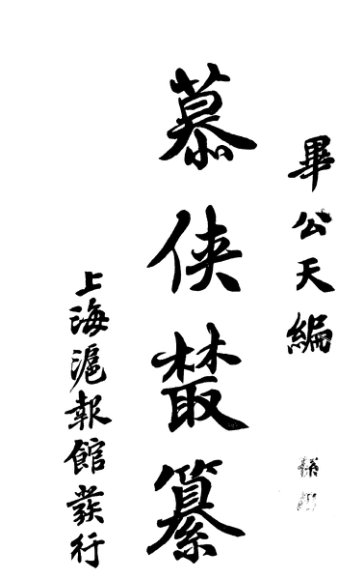 畢公天編
慕俠叢纂
上海滬報館發行